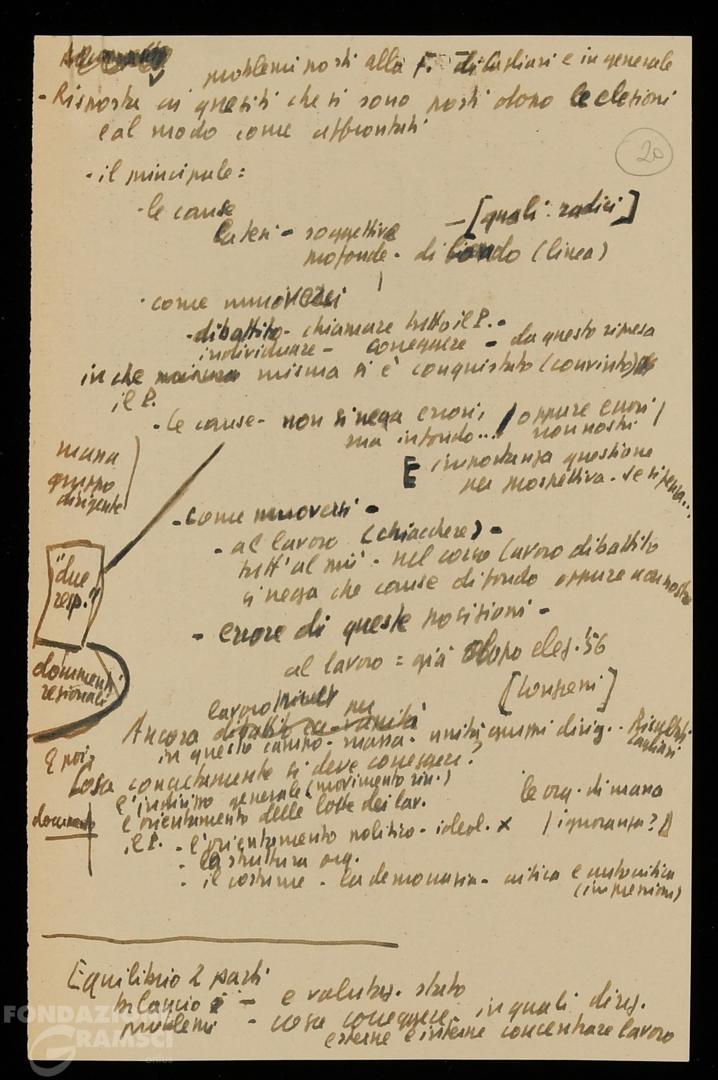 problemi posti alla F. di Cagliari e in generale
- Risposta ai quesiti che si sono posti dopo le elezioni
e al modo come affrontati
20
- il principale:
- le cause
la tesi - soggettive - [quali radici]
profonde - di fondo (linea)
- come muoversi
- dibattito - chiamare tutto il P. -
individuare - correggere - da questo ripresa
in che misura si è conquistato (convinto)
il P.
- le cause - non si nega errori, / oppure errori /
ma in fondo... non nostri
E importanza questione
per prospettiva. se si pensa...
massa
gruppo
dirigente
- come muoversi -
- al lavoro (chiacchere) -
tutt'al più - nel corso lavoro dibattito
si nega che cause di fondo oppure non nostre
"due
resp."?
- errore di queste posizioni -
al lavoro = già dopo elez. '56
documenti
regionali
lavoro
Ancora dibattito
in questo campo - massa - unità gruppi dirig. - Risultati
Cagliari
E poi:
Cosa concretamente si deve correggere?
l'indirizzo generale (movimento rin.) le org. di massa
l'orientamento delle lotte dei lav.
documento
il P. - l'orientamento politico - ideol. x / ignoranza?
- la struttura org.
- il costume - la democrazia - critica e autocritica
Equilibrio 2 parti
bilancio - e valutaz. stato
problemi - cosa correggere - in quali direz.
esterne e interne concentrare lavoro
FONDAZIONE
GRAMSCI
onlus